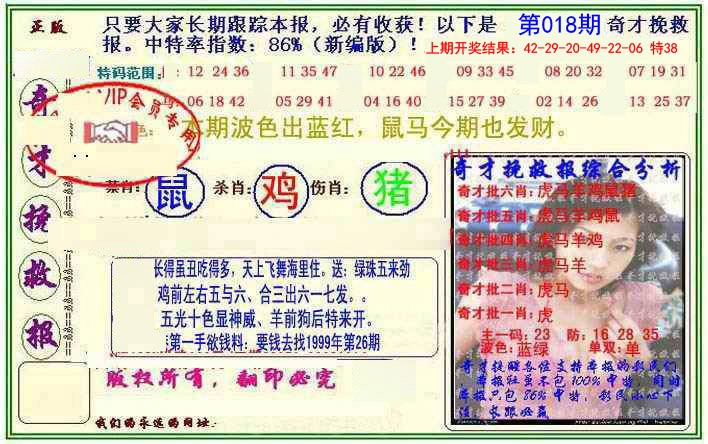 正版
只要大家长期跟踪本报，必有收获！以下是 第018期 奇才挽救
报。中特率指数：86%（新编版）！ 上期开奖结果：42-29-20-49-22-06 特38
特码范围： 12 24 36 11 35 47 10 22 46 09 33 45 08 20 32 07 19 31
06 18 42 05 29 41 04 16 40 15 27 39 02 14 26 13 25 37
VIP会员专用
本期波色出蓝红，鼠马今期也发财。
奇才挽救报
禁肖：鼠 杀肖：鸡 伤肖：猪
长得虽丑吃得多，天上飞舞海里住。送：绿珠五来劲
鸡前左右五与六、合三出六一七发。。
五光十色显神威、羊前狗后特来开。
第一手欲钱料：要钱去找1999年第26期
版权所有，翻印必究
我们的永远的网址：
奇才挽救报综合分析
奇才批六肖：虎马羊鸡鼠猪
奇才批五肖：虎马羊鸡鼠
奇才批四肖：虎马羊鸡
奇才批三肖：虎马羊
奇才批二肖：虎马
奇才批一肖：虎
主一码：23 防：16 28 35
波色：蓝绿 单双：单
奇才提醒各位支持本报的彩民们
本报独虽不包100%中特，同时
本报只包86%中特，彩民小心下
注，长跟必赢